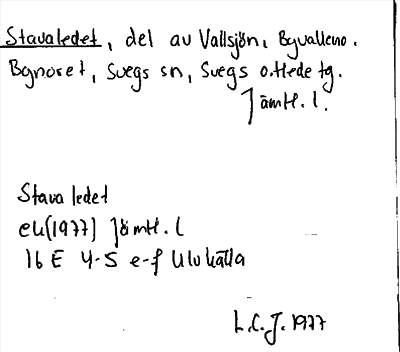 Stavaledet, del av Vallsjön, Byvallen o.
Bynoret, Svegs sn, Svegs o. Hede tg.
Jämtl. l.
Stavaledet
ek (1977) Jämtl. l
16 E 4-5 e-f Ulvkälla
L.C.J. 1977